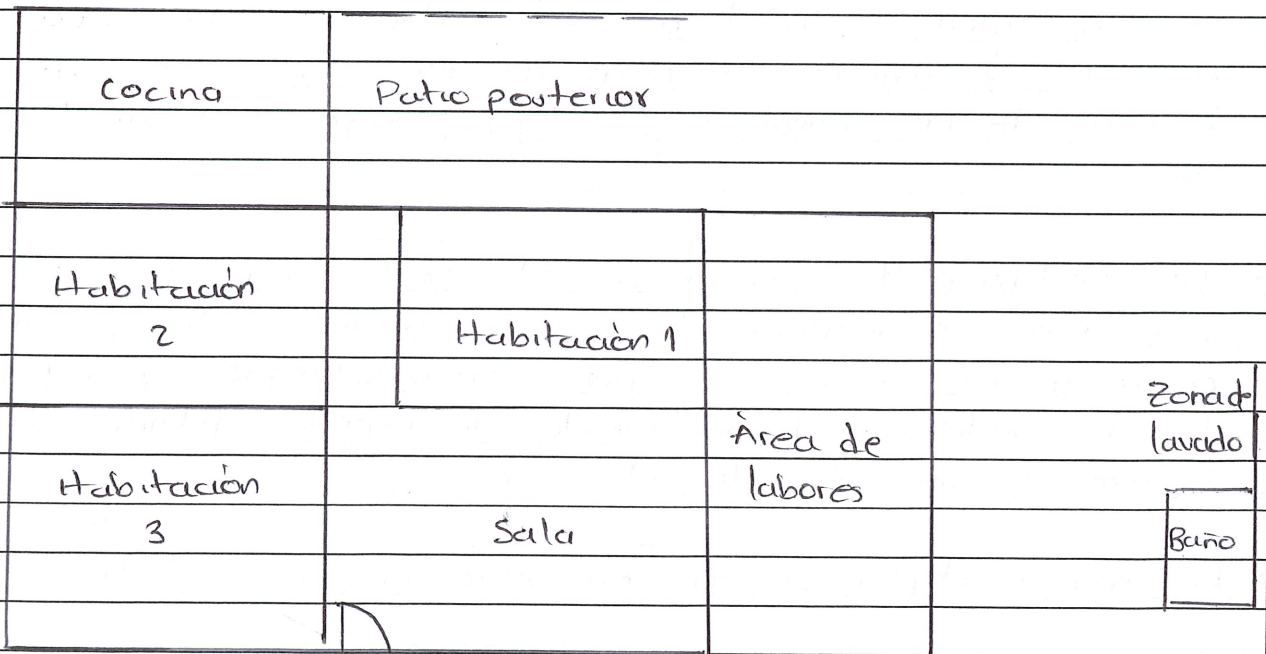 Cocina
Patio posterior
Habitación
2
Habitación 1
Zona de
lavado
Área de
labores
Habitación
3
Sala
Baño